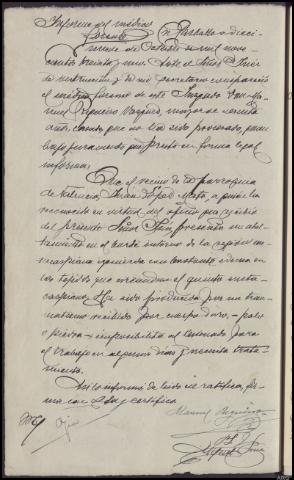 Informe del médico
forense En Carballo a dieci
nueve de Octubre de mil nove
cientos treinta y uno. Ante el Señor Juez
de instrucción y de mi Secretario compareció
el médico forense de este Juzgado Don Ma
nuel Regueiro Vazquez, mayor de
años, dando que no ha sido procesado para
bajo juramento que prestó en forma legal
informa:
Que el vecino de la parroquia
de Mato, a quien ha
reconocido en virtud del oficio que recibió
del presente Señor Juez presenta un
en el borde interno de la región me
tacarpiana izquierda con bastante edema en
los tejidos que circundan el quinto meta
carpiano. Ha sido producida por un trau
matismo recibido por cuerpo duro, palo
o piedra e imposibilita al lesionado para
el trabajo en algunos dias y necesita trata
miento.
Así lo informa de leido se ratifica, fir
ma con S.Sª y certifico
Manuel Regueiro